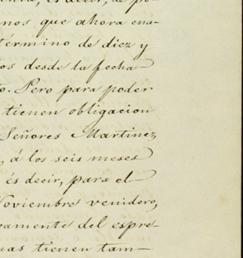 es decir, de po-
nos que ahora ena-
término de diez y
os desde la fecha
o. Pero para poder
tienen obligacion
Señores Martinez,
, á los seis meses
és decir, para el
Noviembre venidero,
vamente del espre-
uas tienen tam-